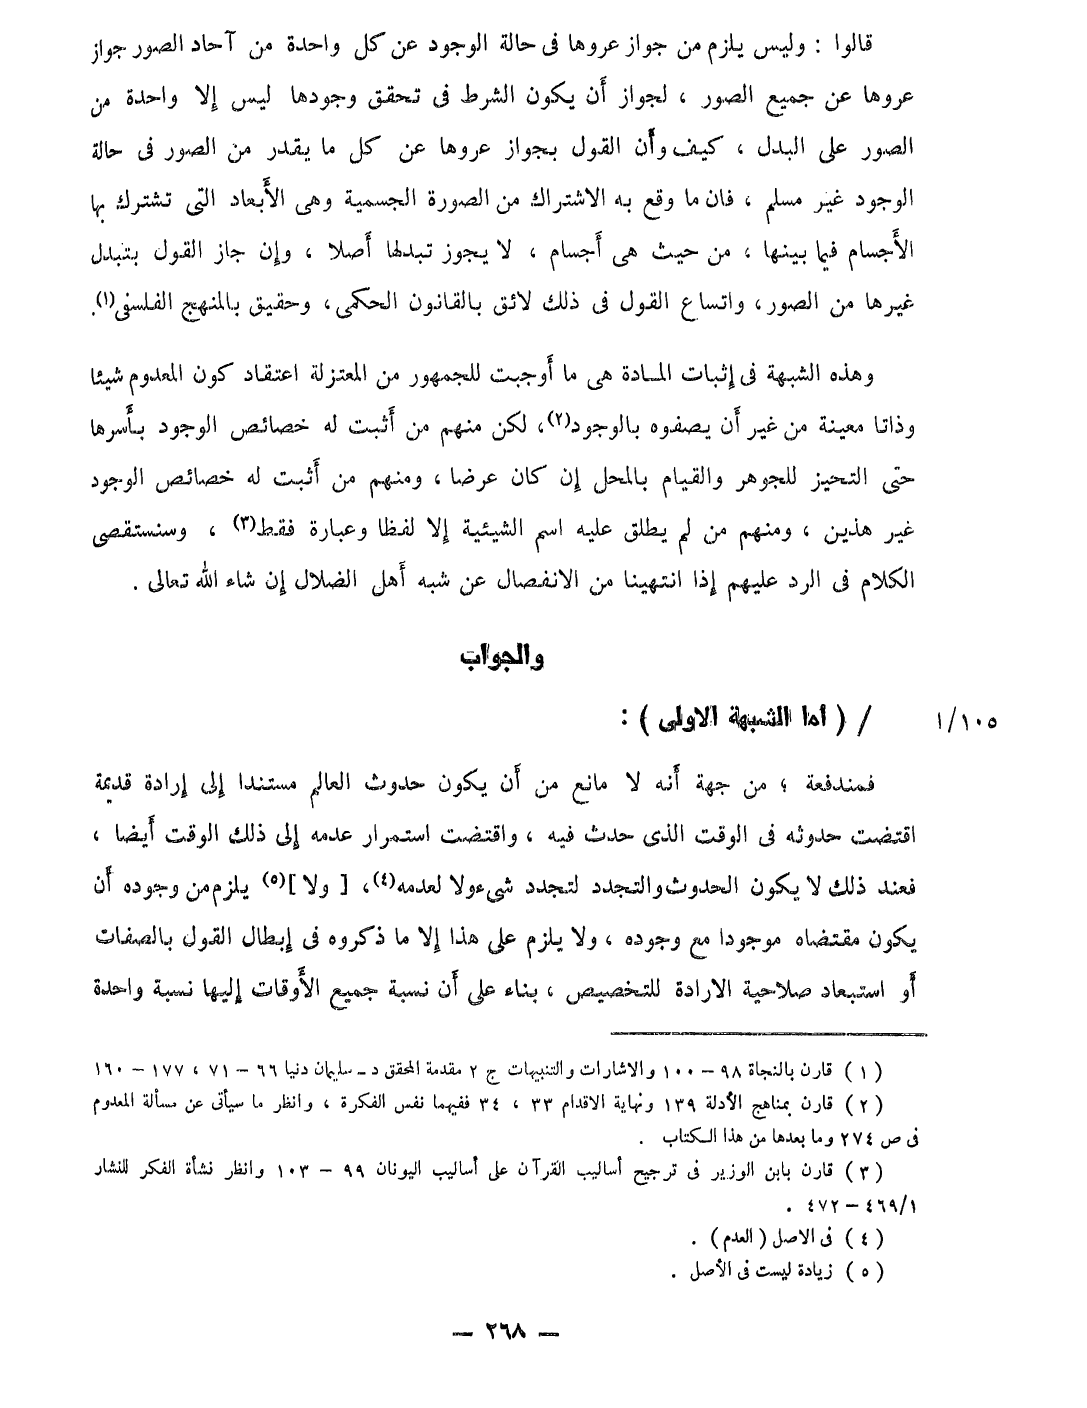 قالوا : وليس يلزم من جواز عروها فى حالة الوجود عن كل واحدة من آحاد الصور جواز
عروها عن جميع الصور ، لجواز أن يكون الشرط فى تحقق وجودها ليس إلا واحدة من
الصور على البدل ، كيف وأن القول بجواز عروها عن كل ما يقدر من الصور فى حالة
الوجود غير مسلم ، فان ما وقع به الاشتراك من الصورة الجسمية وهى الأبعاد التى تشترك بها
الأجسام فيما بينها ، من حيث هى أجسام ، لا يجوز تبدلها أصلا ، وإن جاز القول بتبدل
غيرها من الصور ، واتساع القول فى ذلك لائق بالقانون الحكمى ، وحقيق بالمنهج الفلسفى(١).
وهذه الشبهة فى إثبات المادة هى ما أوجبت للجمهور من المعتزلة اعتقاد كون المعدوم شيئا
وذاتا معينة من غير أن يصفوه بالوجود(٢)، لكن منهم من أثبت له خصائص الوجود بأسرها
حتى التحيز للجوهر والقيام بالمحل إن كان عرضا ، ومنهم من أثبت له خصائص الوجود
غير هذين ، ومنهم من لم يطلق عليه اسم الشيئية إلا لفظا وعبارة فقط(٣) ، وسنستقصى
الكلام فى الرد عليهم إذا انتهينا من الانفصال عن شبه أهل الضلال إن شاء الله تعالى .
والجواب
١/١٠٥ / ( أما الشبهة الاولى ) :
فمندفعة ؛ من جهة أنه لا مانع من أن يكون حدوث العالم مستندا إلى إرادة قديمة
اقتضت حدوثه فى الوقت الذى حدث فيه ، واقتضت استمرار عدمه إلى ذلك الوقت أيضا ،
فعند ذلك لا يكون الحدوث والتجدد لتجدد شىء ولا لعدمه(٤)، [ ولا ](٥) يلزم من وجوده أن
يكون مقتضاه موجودا مع وجوده ، ولا يلزم على هذا إلا ما ذكروه فى إبطال القول بالصفات
أو استبعاد صلاحية الارادة للتخصيص ، بناء على أن نسبة جميع الأوقات إليها نسبة واحدة
( ١ ) قارن بالنجاة ٩٨ – ١٠٠ والاشارات والتنبيهات ج ٢ مقدمة المحقق د – سليمان دنيا ٦٦ – ٧١ ، ١٧٧ – ١٦٠
( ٢ ) قارن بمناهج الأدلة ١٣٩ ونهاية الاقدام ٣٣ ، ٣٤ ففيهما نفس الفكرة ، وانظر ما سيأتى عن مسألة المعدوم
فى ص ٢٧٤ وما بعدها من هذا الكتاب .
( ٣ ) قارن بابن الوزير فى ترجيح أساليب القرآن على أساليب اليونان ٩٩ – ١٠٣ وانظر نشأة الفكر للنشار
٤٦٩/١ – ٤٧٢ .
( ٤ ) فى الاصل ( العدم ) .
( ٥ ) زيادة ليست فى الأصل .
— ٢٦٨ —